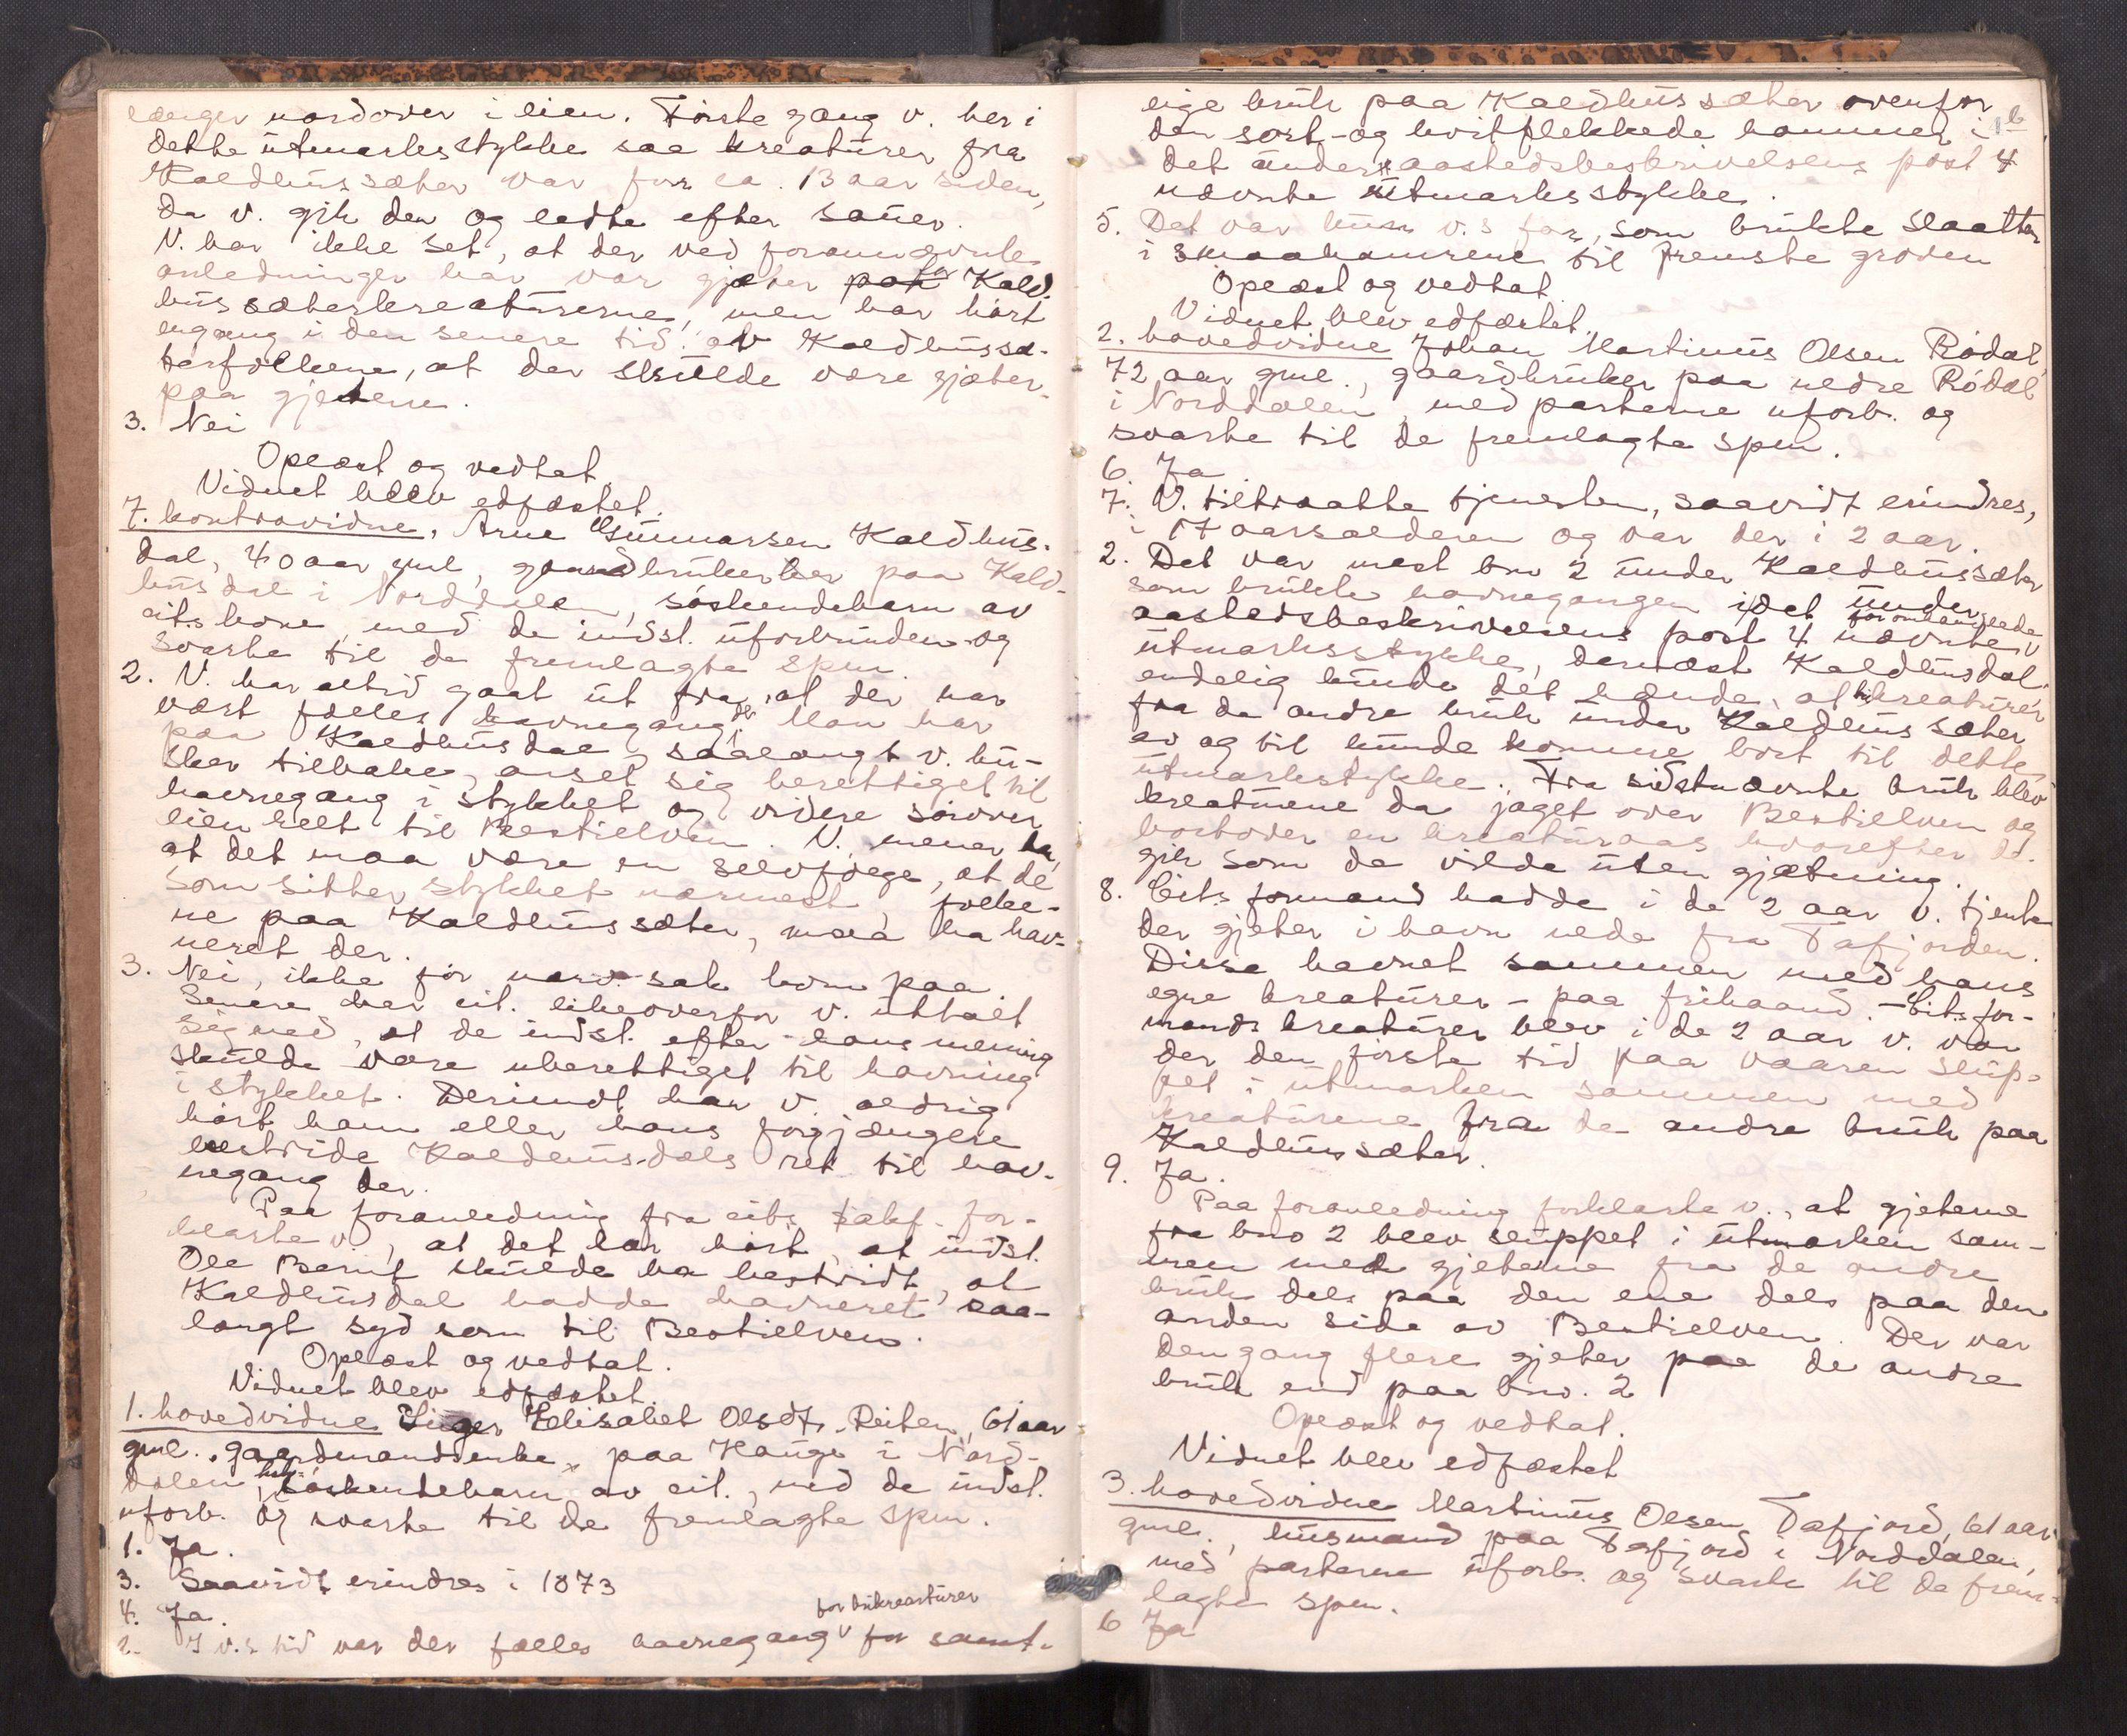 længer nordover i lien. Første gang v. her i
dette utmarksstykke saa kreaturer fra
Kaldhussæter var for ca. 13 aar siden,
da v. gik der og ledte efter sauer.
V. har ikke set, at der ved forannævnte
anledninger har var gjæter for Kald-
hussæterkreaturerne, men har hørt
engang i den senere tid av Kaldhussæ-
terfolkene, at der skulde være gjæter
paa gjetene.
3. Nei
Oplæst og vedtat.
Vidnet blev edfæstet.
7. kontravidne, Arne Gunnarsen Kaldhus-
dal, 40 aar gml, gaardbruker paa Kald-
husdal i Norddalen, søskendebarn av
cits kone, med de indst. uforbunden og
svarte til de fremlagte spm.
2. V. har altid gaat ut fra, at der har
vært fælles havnegang der. Man har
paa Kaldhusdal, saalangt v. hu-
sker tilbake, anset sig berettiget til
havnegang i stykket og videre sørover
lien helt til Bestielven. V. mener da,
at det maa være en selvfølge, at de
som sitter stykket nærmest, folke-
ne paa Kaldhussæter, maa ha hav-
neret der.
3. Nei, ikke før nærv. sak kom paa.
Senere har cit. likeoverfor v. uttalt
sig ned, at de indst. efter hans mening
skulde være uberettiget til havning
i stykket. Derimot har v. aldrig
hørt ham eller hans forgjængere
bestride Kaldhusdals ret til hav-
negang der.
Paa foranledning fra cits sakf. for-
klarte v., at det har hørt, at indst.
Ole Bernt skulde ha bestridt, at
Kaldhusdal hadde havneret saa-
langt syd som til Bestielven.
Oplæst og vedtat.
Vidnet blev edfæstet
1. hovedvidne Inger Elisabet Olsdt. Reiten, 61 aar
gml. gaardmandsenke paa Hauge i Nord-
dalen, søskendebarn av cit., med de indst.
uforb. og svarte til de fremlagte spm.
1. Ja.
3. Saavidt erindres i 1873
4. Ja.
for bukreaturer
2. I v.s tid var der fælles havnegang for samt-
lige bruk paa Kaldhussæter ovenfor
den sort- og hvitflekkede hammer i
det under aastedsbeskrivelsens post 4
nævnte utmarksstykke.
5. Det var kun v.s far, som brukte slaatten
i smaahamrene til fremste groven
Oplæst og vedtat.
Vidnet blev edfæstet.
2. hovedvidne Johan Martinus Olsen Rødal,
72 aar gml., gaardbruker paa nedre Rødal
i Norddalen, med parterne uforb. og
svarte til de fremlagte spm.
6. Ja
7. V. tiltraatte tjenesten, saavidt erindres,
i 17 aarsalderen og var der i 2 aar.
2. Det var mest bno 2 under Kaldhussæter
som brukte havnegangen i det under
aastedsbeskrivelsens post 4 nævnte
utmarksstykke, dernæst Kaldhusdal.
endelig kunde det hænde, at kreaturer
fra de andre bruk under Kaldhussæter
av og til kunde komme bort til dette
utmarkstykke. Fra sidstnævnte bruk blev
kreaturene da jaget over Bestielven og
bortover en kreaturaas hvorefter de
gik som de vilde uten gjætning.
8. Cits formand hadde i de 2 aar v. tjente
der gjeter i havn nede fra Tafjorden.
Disse havnet sammen med hans
egne kreaturer - paa frihaand. - Cits for-
mands kreaturer blev i de 2 aar v. var
der den første tid paa vaaren slup-
pet i utmarken sammen med
kreaturene fra de andre bruk paa
Kaldhussæter.
9. Ja.
Paa foranledning forklarte v., at gjetene
fra bno 2 blev sluppet i utmarken sam-
men med gjetene fra de andre
bruk dels paa den ene dels paa den
anden side av Bestielven. Der var
dengang flere gjeter paa de andre
bruk end paa bno. 2
Oplæst og vedtat.
Vidnet blev edfæstet
3. hovedvidne Martinus Olsen Tafjord, 61 aar
gml., husmand paa Tafjord i Norddalen,
med parterne uforb. og svarte til de frem-
lagte spm.
6 Ja